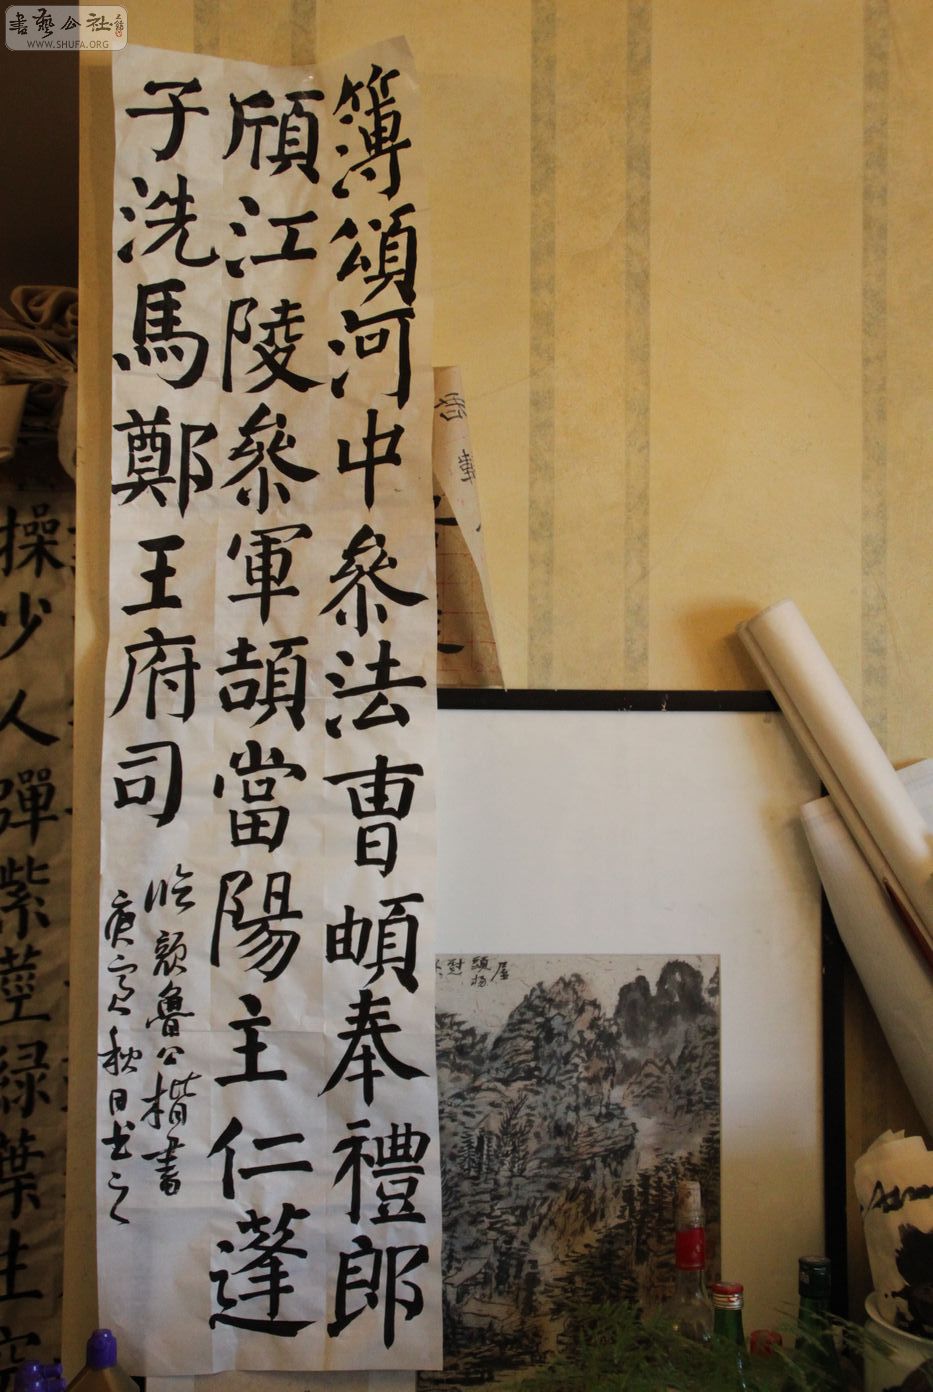 書藝公社
WWW.SHUFA.ORG
簿頌河中叅法曺頔奉禮郎
頎江陵叅軍頡當陽主仁蓬
子洗馬鄭王府司
临顏魯公楷書
庚寅秋日书之
操少人彈紫莖緑葉生